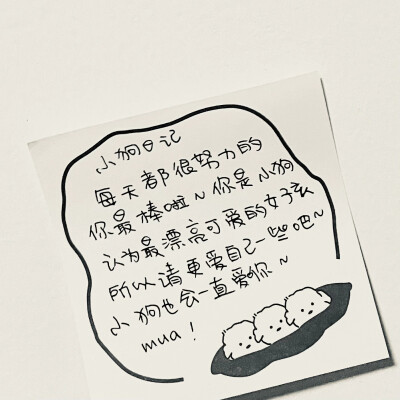 小狗日记
每天都很努力的
你最棒啦~你是小狗
认为最漂亮可爱的女孩
所以请更爱自己一些吧~
小狗也会一直爱你~
mua!